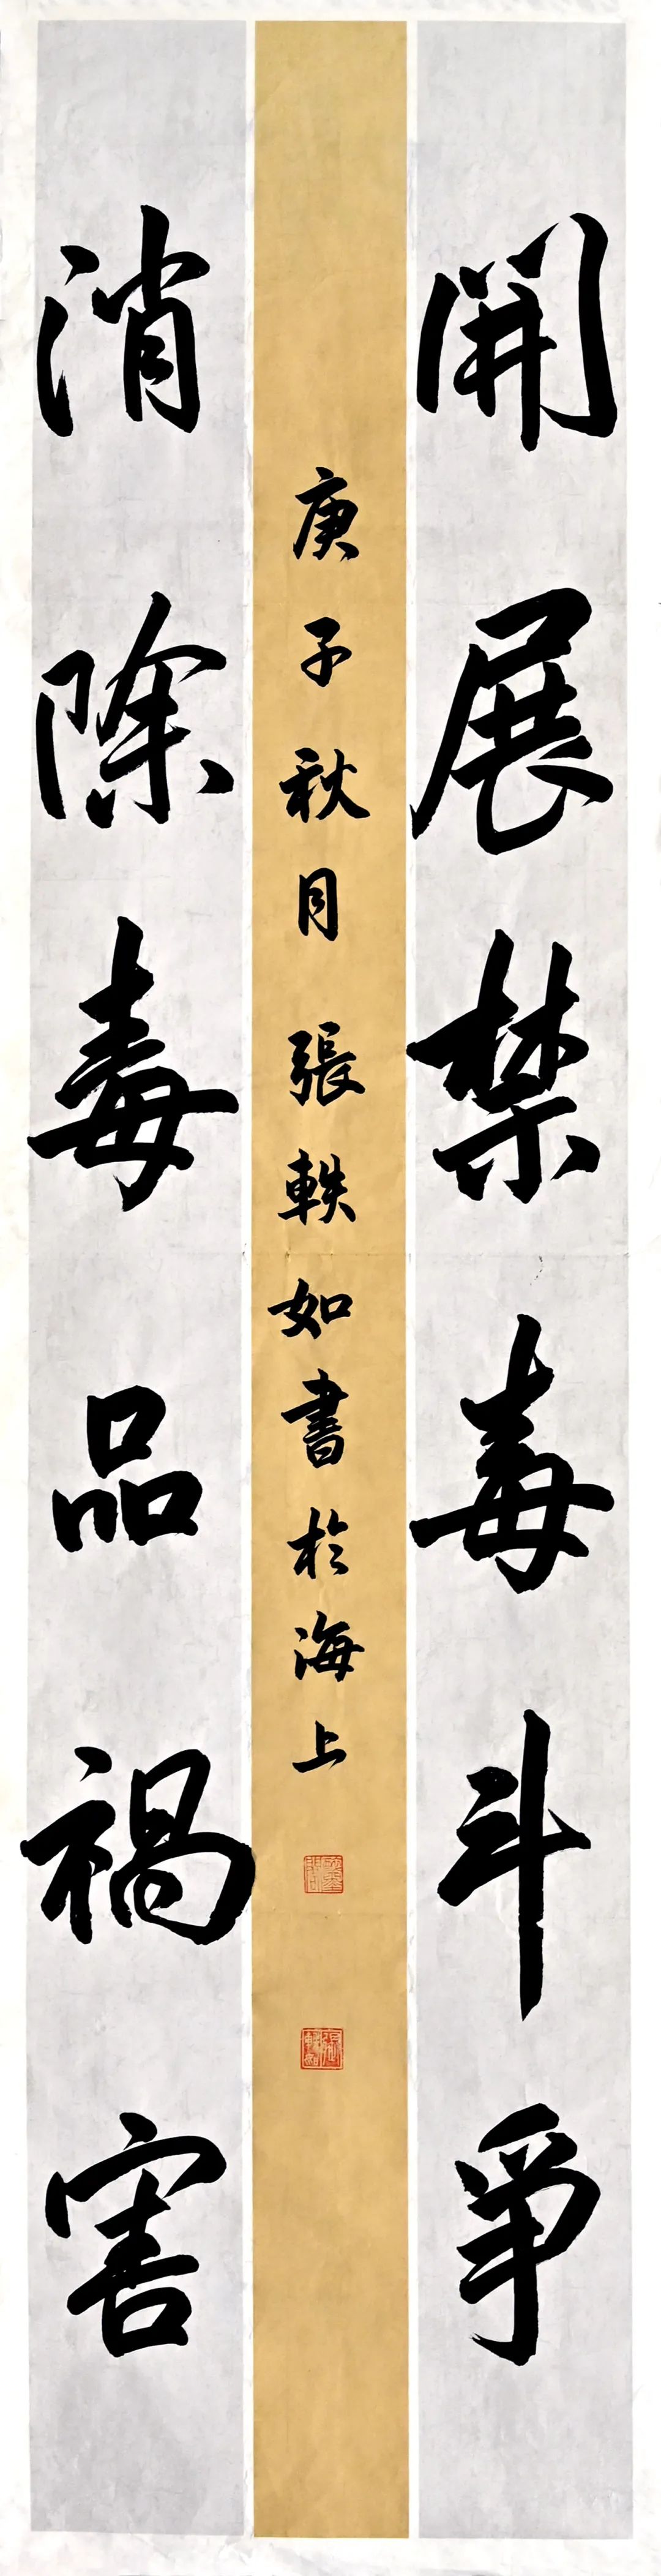 開展禁毒斗爭
庚子秋月 張軼如書於海上
消除毒品禍害